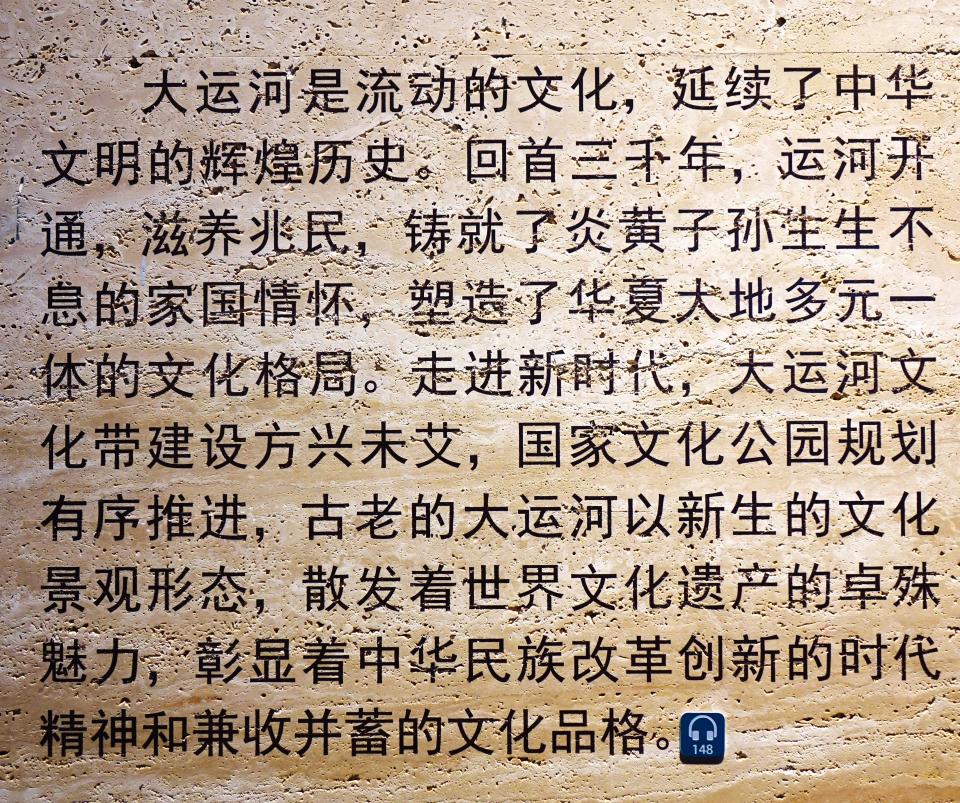 大运河是流动的文化，延续了中华
文明的辉煌历史。回首三千年，运河开
通，滋养兆民，铸就了炎黄子孙生生不
息的家国情怀，塑造了华夏大地多元一
体的文化格局。走进新时代，大运河文
化带建设方兴未艾，国家文化公园规划
有序推进，古老的大运河以新生的文化
景观形态，散发着世界文化遗产的卓殊
魅力，彰显着中华民族改革创新的时代
精神和兼收并蓄的文化品格。
148